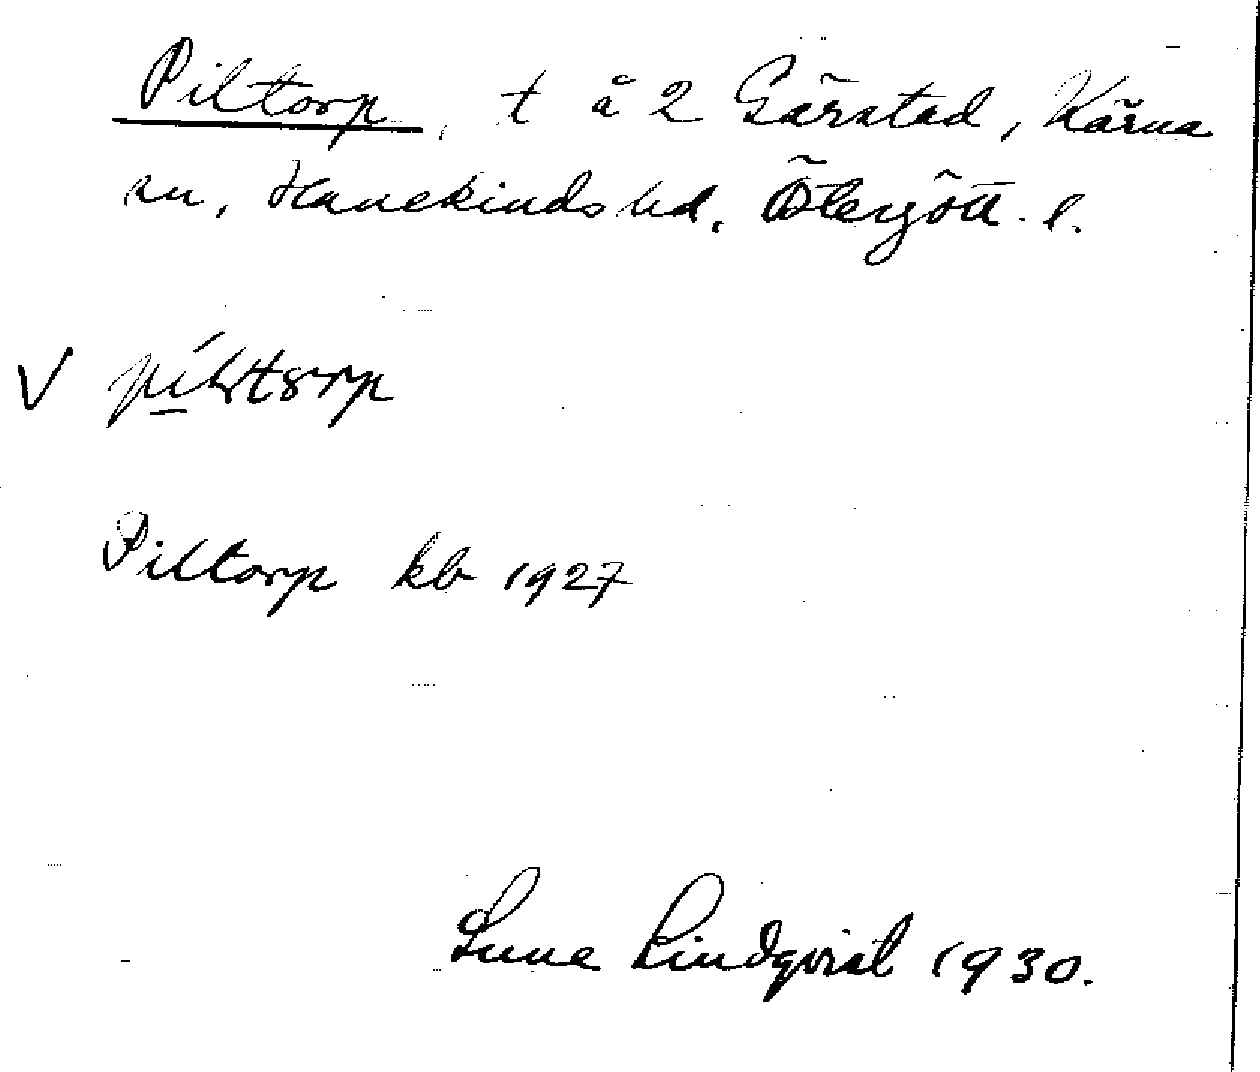 Piltorp, t å 2 Gärstad, Kärna
sn, Hanekinds hd. Östergötl. l.
V
Piltorp kb 1927
Sune Lindqvist 1930.